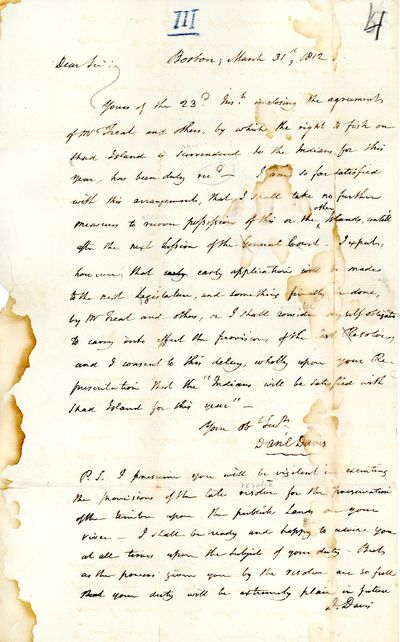 III
Boston, March 31st, 1812
Dear Sir
Yours of the 23d. Inst. inclosing the agreement
of Mr Treat and others, by which the right to fish on
Shad Island is surrendered to the Indians for this
year, has been duly recd — I am so far satisfied
with this arrangement, that I shall take no further
measures to recover possession of this or the other Islands, until
after the next Session of the General Court. I expect,
however, that early application will be made
to the next Legislature, and something finally done,
by Mr Treat and others, or I shall consider myself obligated
to carry into effect the provisions of the last Resolve,
and I consent to this delay, wholly upon your Re-
presentation that the "Indians will be satisfied with
Shad Island for this year" —
Your Ob t Servt
Danl Davis
P.S. I presume you will be vigilent in executing
resolve
the provisions of the late resolve for the preservation
of the timber upon the publick Lands on your
river — I shall be ready and happy to advise you
at all times upon the subject of your duty — But,
as the powers given you by the resolve are so full
that your duty will be extremely plain in future
D. Davis